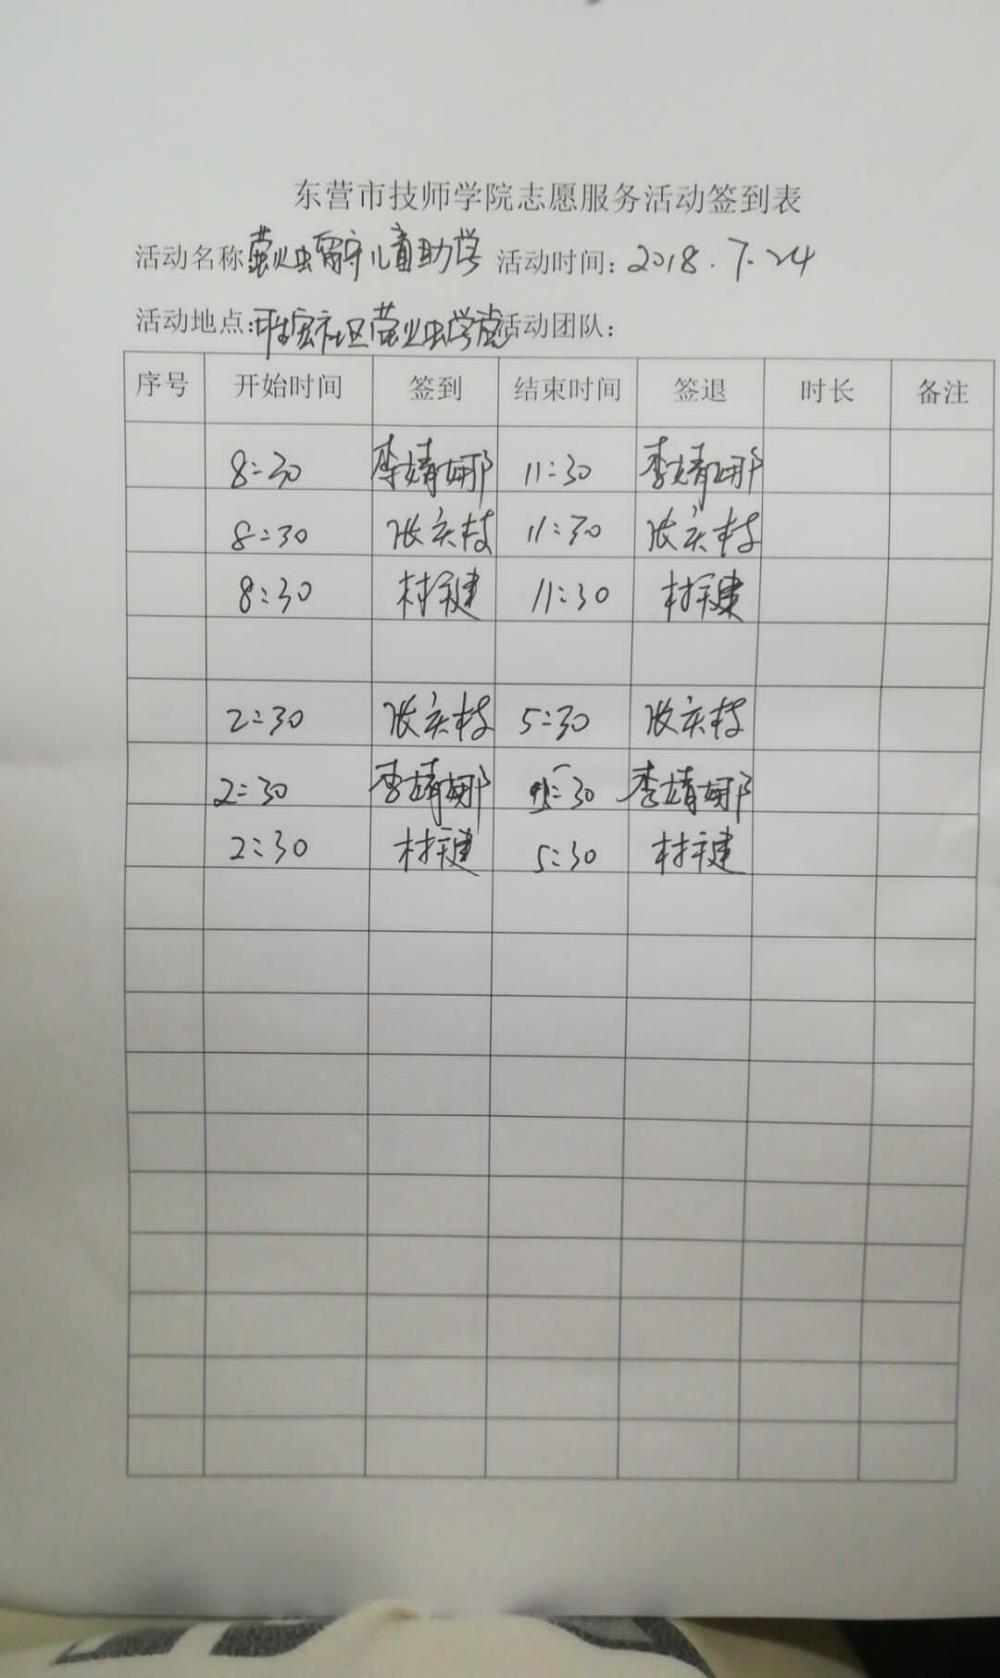 东营市技师学院志愿服务活动签到表
活动名称 萤火虫留守儿童助学 活动时间：2018.7.24
活动地点： 社区萤火虫学堂 活动团队：
序号 开始时间 签到 结束时间 签退 时长 备注
8:30 李婧娜 11:30 李婧娜
8:30 张庆枝 11:30 张庆枝
8:30 11:30
2:30 张庆枝 5:30 张庆枝
2:30 李婧娜 5:30 李婧娜
2:30 5:30